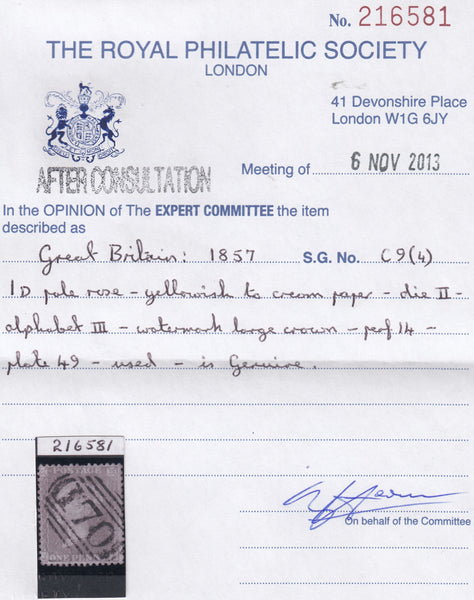 No. 216581
THE ROYAL PHILATELIC SOCIETY
LONDON
41 Devonshire Place
London W1G 6JY
AFTER CONSULTATION
Meeting of 6 NOV 2013
In the OPINION of The EXPERT COMMITTEE the item
described as
Great Britain: 1857 S.G. No. C9(4)
1D pale rose - yellowish to cream paper - die II -
alphabet III - watermark large crown - perf 14 -
plate 49 - used - is Genuine.
216581
POSTAGE
170
ONE PENNY
On behalf of the Committee